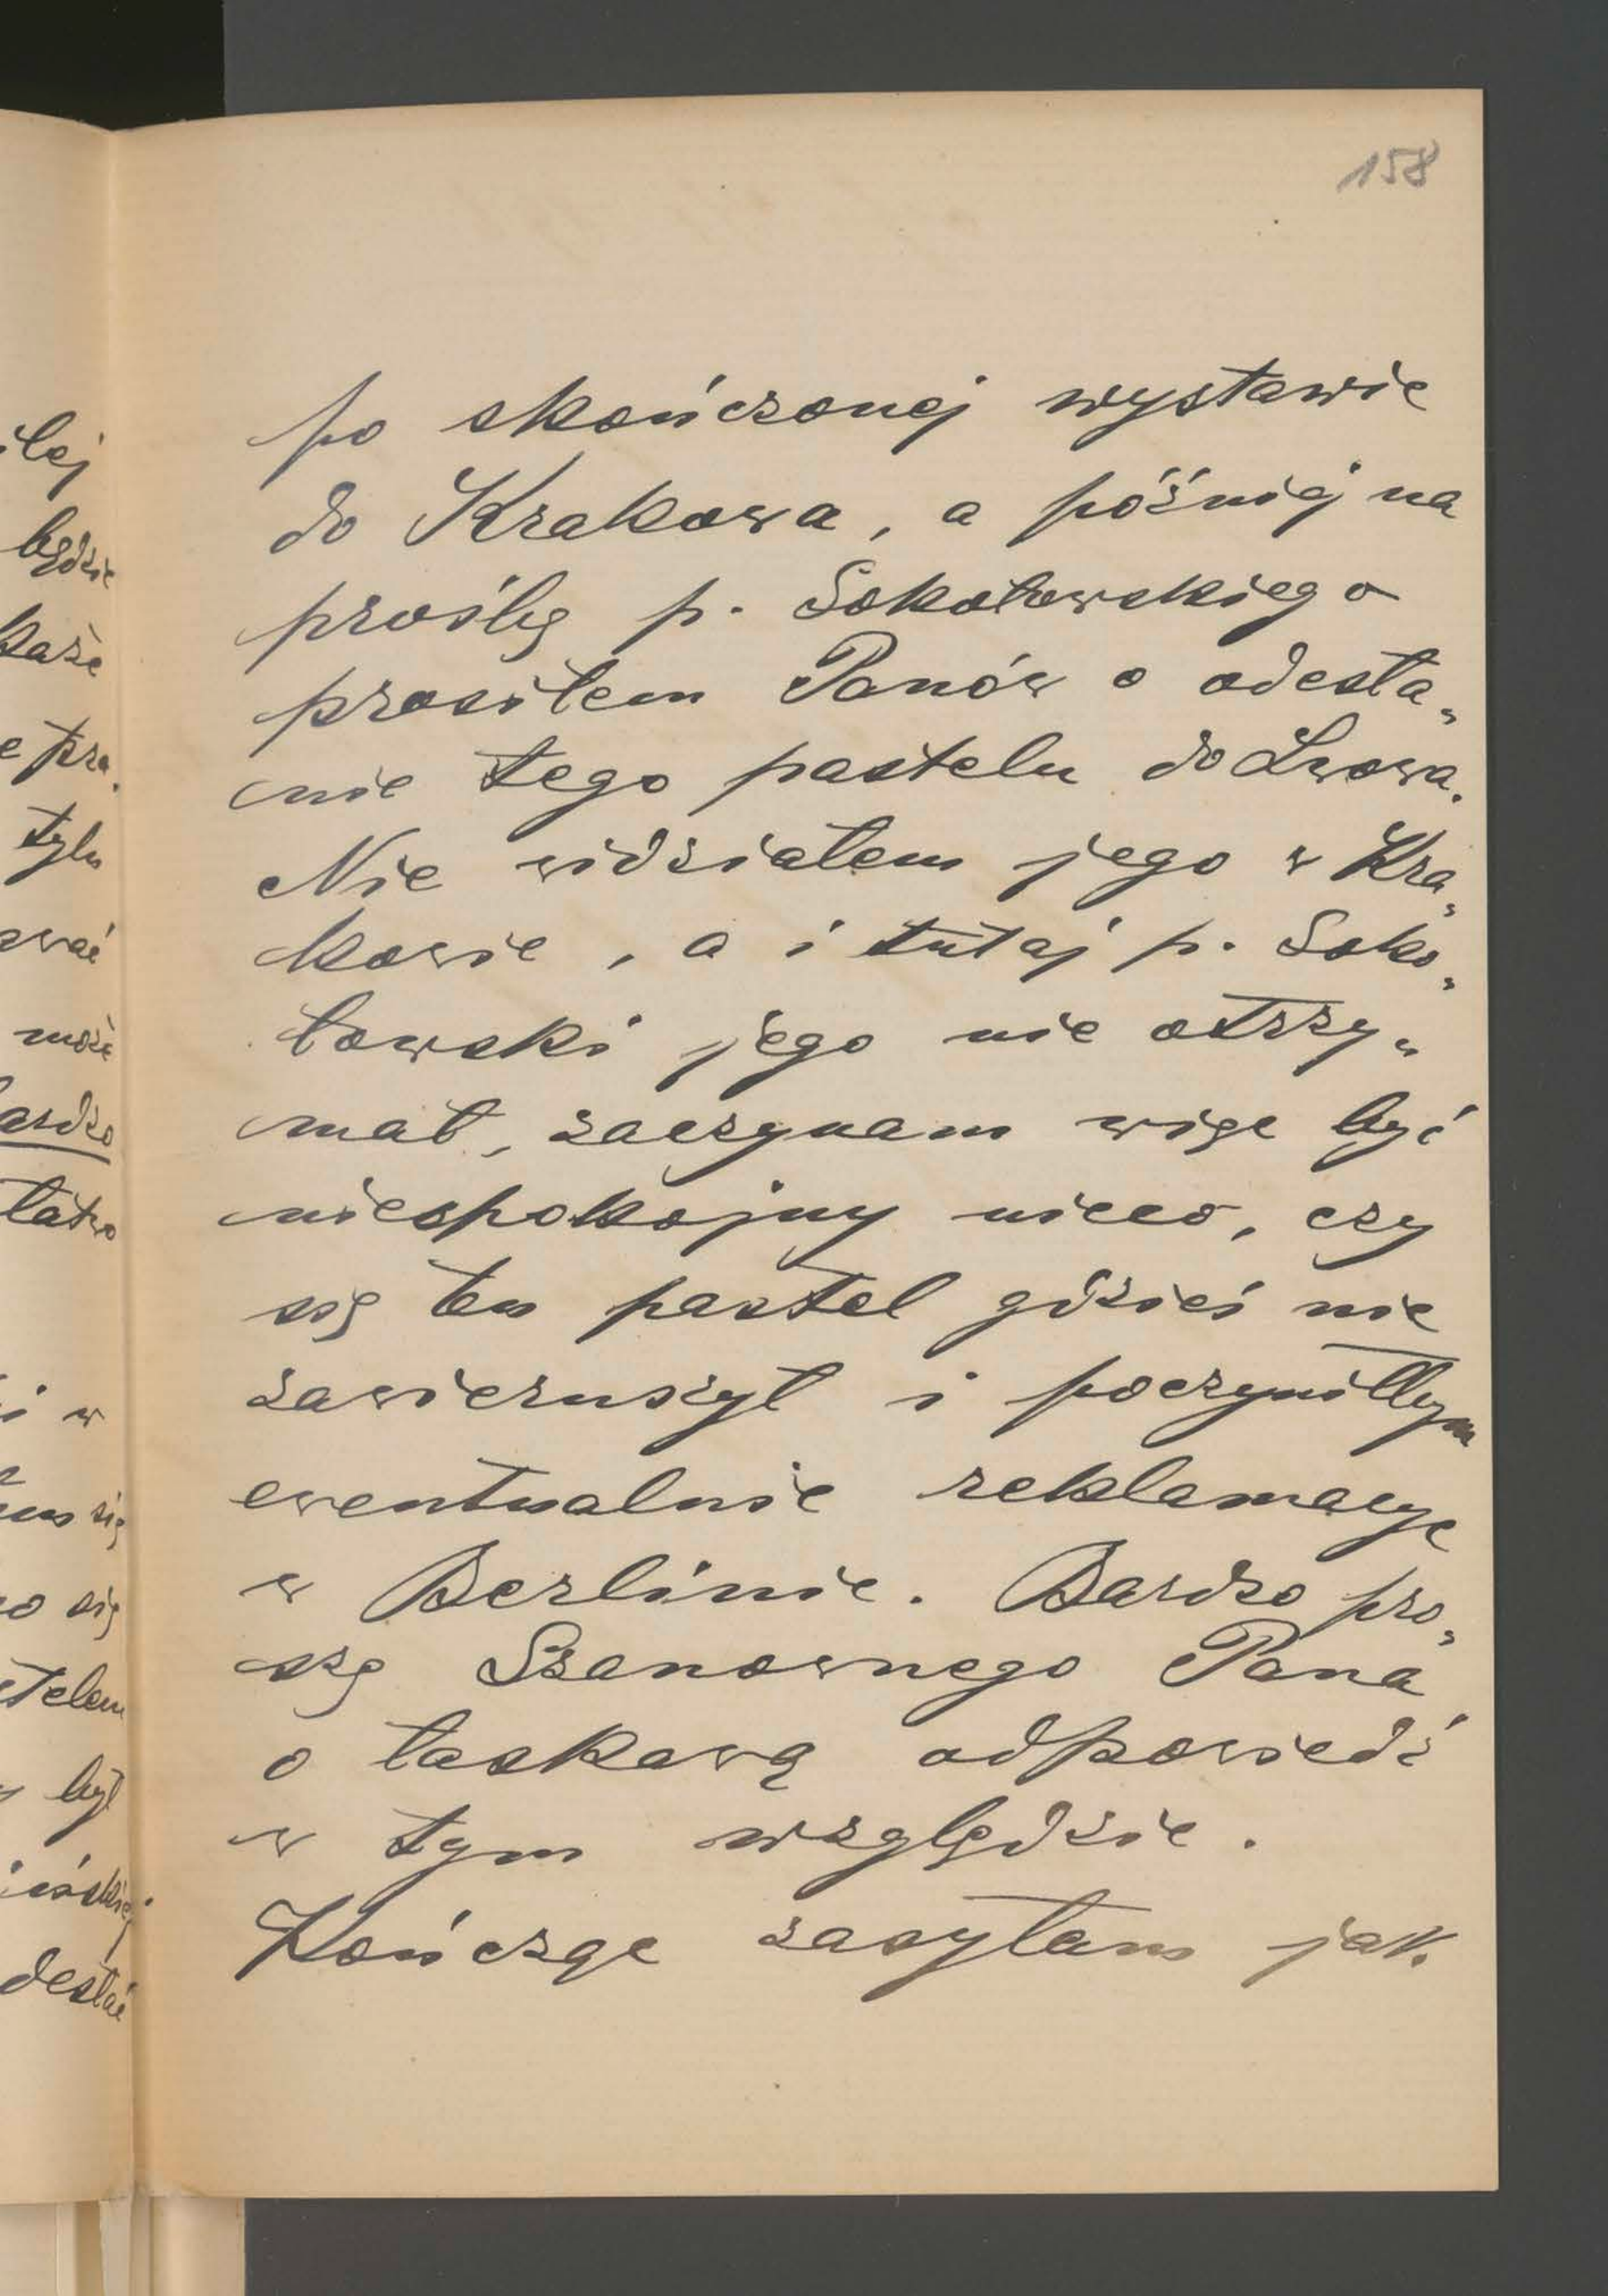 158
po skończonej wystawie
do Krakowa, a późniéj na
prośbę p. Sokołowskiego
prosiłem Panów o odesła„
nie tego pastelu do Lwowa.
Nie widziałem jego w Kra„
kowie, a i tutaj p. Soko„
łowski jego nie otrzy„
mał, zaczynam więc być
niespokojny nieco, czy
się ten pastel gdzieś nie
zawieruszył i poczyniłbym
ewentualnie reklamacye
w Berlinie. Bardzo pro„
szę Szanownego Pana
o łaskawą odpowiedź
w tym względzie.
Kończąc zasyłam jak.